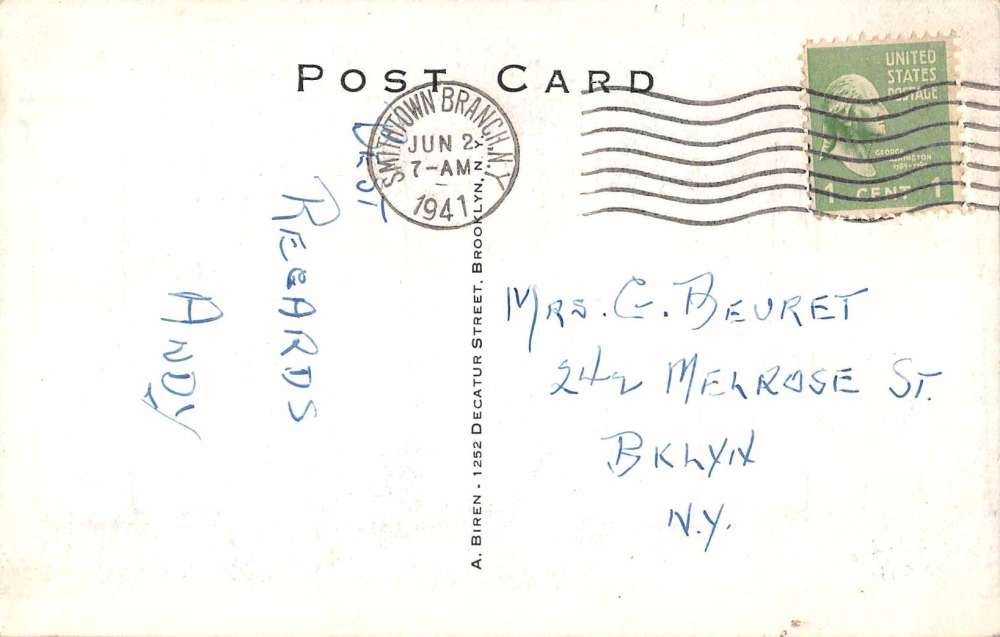 POST CARD
SMITHTOWN BRANCH, N.Y.
JUN 2
7-AM
1941
UNITED
STATES
POSTAGE
GEORGE
WASHINGTON
1 CENT 1
REGARDS
ANDY
A. BIREN - 1252 DECATUR STREET, BROOKLYN, N.Y.
MRS. G. BEURET
242 MELROSE ST.
BKLYN
N.Y.